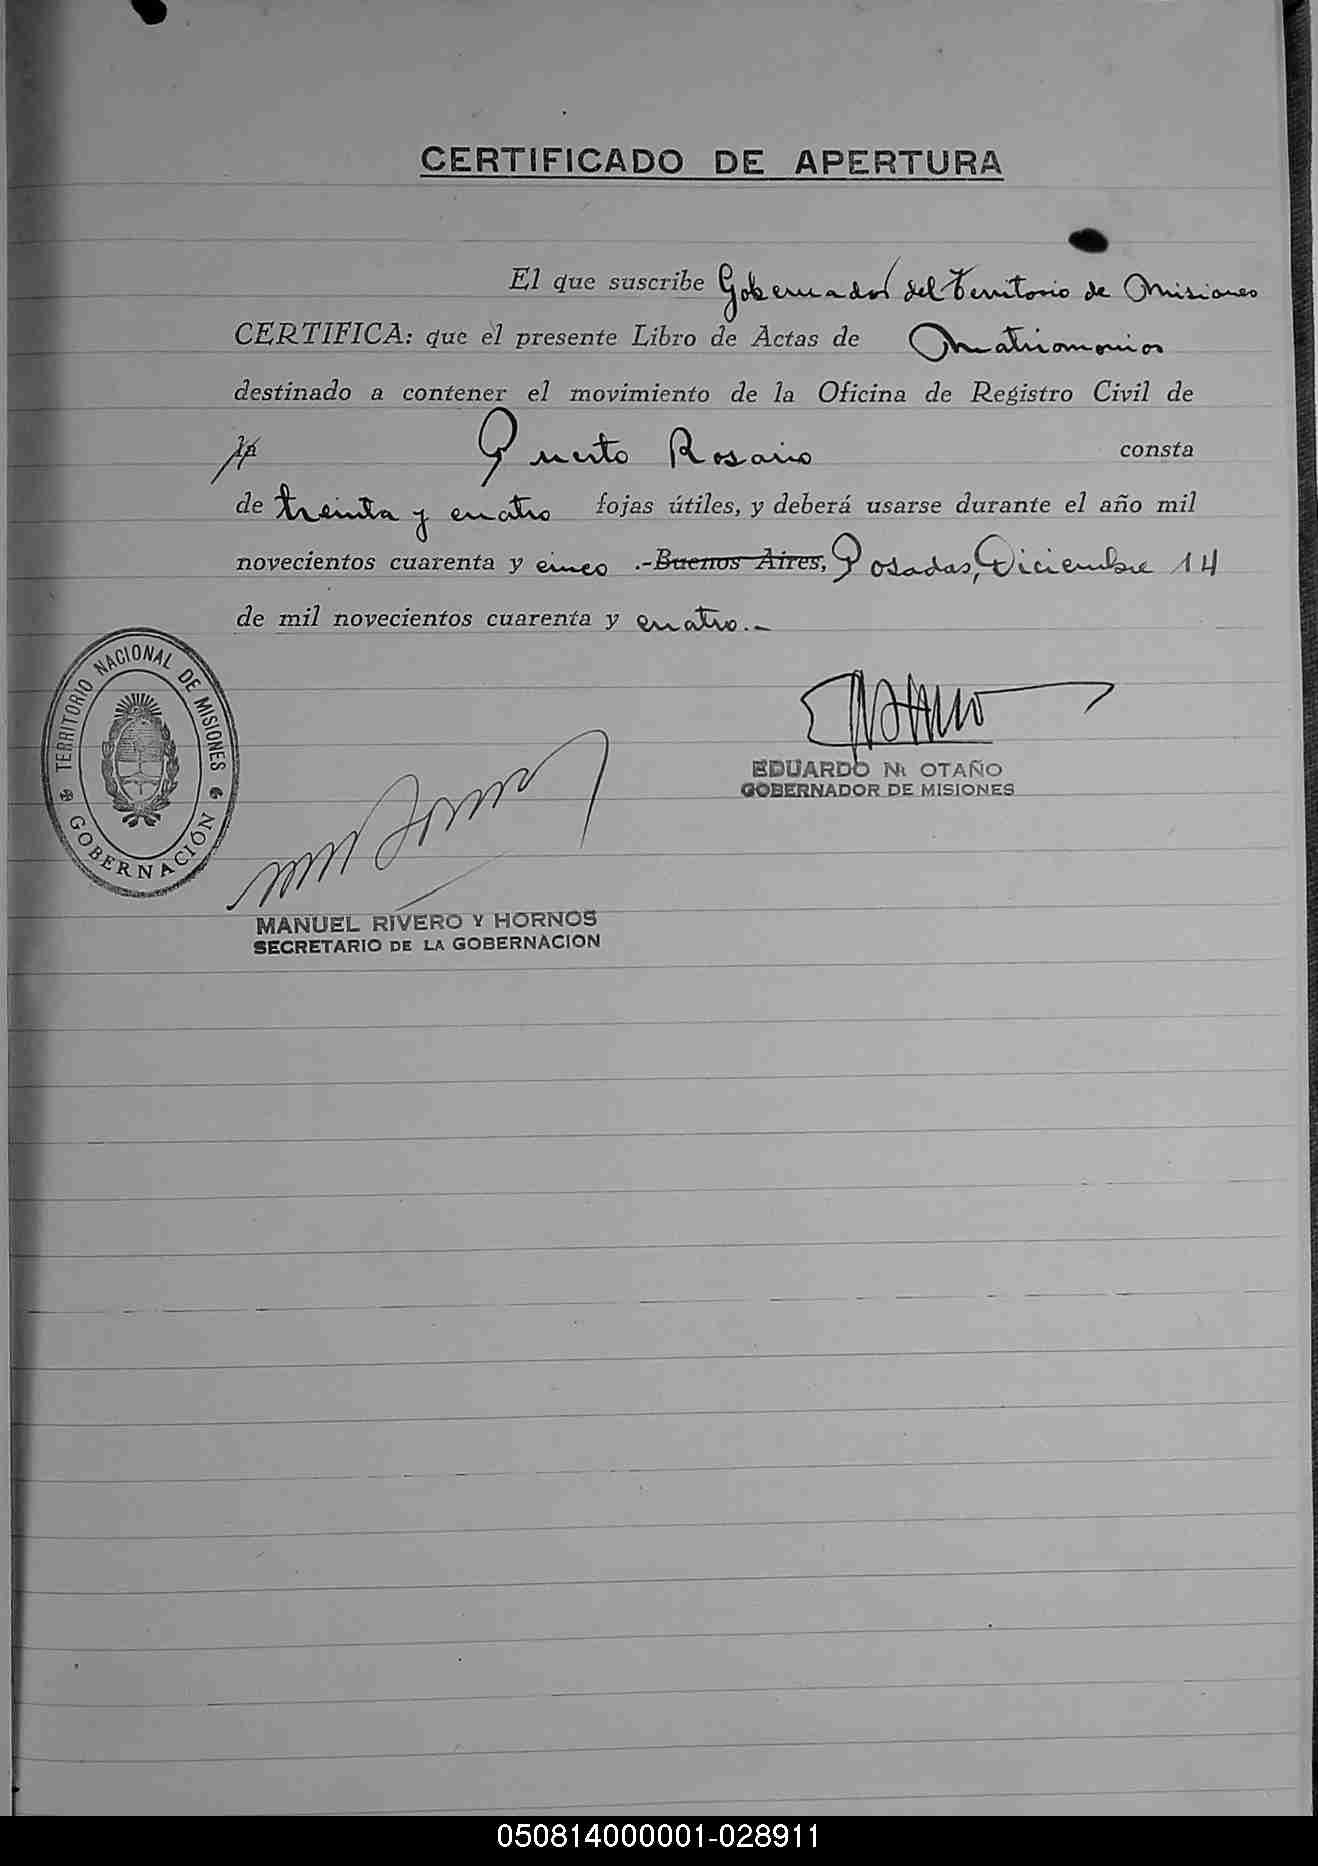 CERTIFICADO DE APERTURA
El que suscribe Gobernador del Territorio de Misiones
CERTIFICA: que el presente Libro de Actas de Matrimonios
destinado a contener el movimiento de la Oficina de Registro Civil de
la Puerto Rosario consta
de treinta y cuatro fojas útiles, y deberá usarse durante el año mil
novecientos cuarenta y cinco .-Buenos Aires, Posadas, Diciembre 14
de mil novecientos cuarenta y cuatro.-
TERRITORIO NACIONAL DE MISIONES
GOBERNACIÓN
EDUARDO N. OTAÑO
GOBERNADOR DE MISIONES
MANUEL RIVERO Y HORNOS
SECRETARIO DE LA GOBERNACION
050814000001-028911